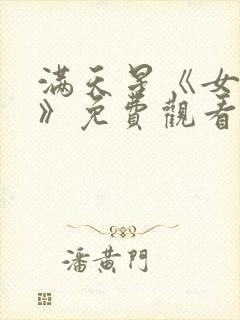 满天星《女
》免費觀看
潘黄門